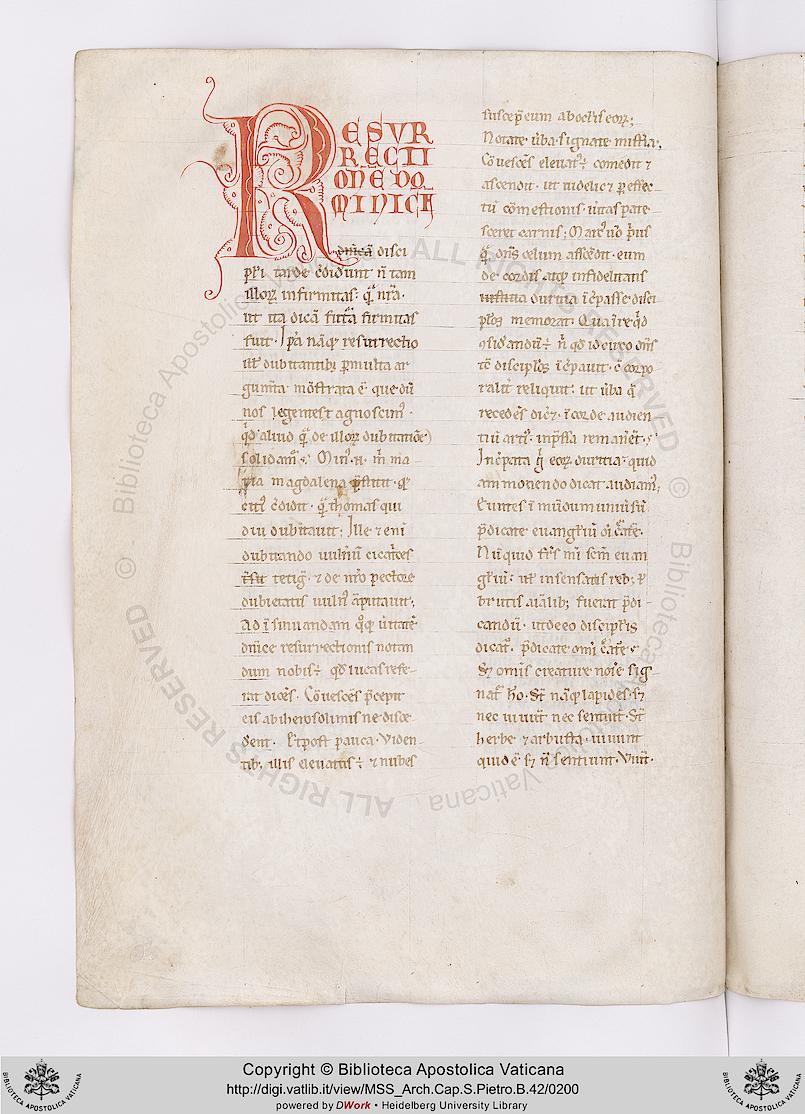 RESUR
RECTI
ONE DO
MINICA
dn̄icā disci
pl̄i tarde c̄didunt n̄ tam
illoꝝ infirmitas: q̄ nr̄a.
ut ita dicā futᷓa firmitas
fuit. Ipᷓa nāqꝫ resurrectio
ill̓ dubitantibꝫ p̱ multa ar
gumtᷓa mōstrata ē. que dū
nos legentes ⁊ agnoscimꝰ.
qͥd aliud qᷓ de illoꝝ dubitatiōe
solidamꝰ. Minꝰ .n. m̄ ma
ria magdalena p̄stitit. q̄
citiꝰ c̄didit. qᷓ thomas qui
diu dubitauit; Ille ⁊ eni
dubitando uulnū cicatͥces
tetig̓. ⁊ de nr̄o pectore
dubietatis uulnꝰ āputauit;
Ad īsinuandam qͦqꝫ ūitatē
dn̄ice resurrectionis notan
dum nobis ÷ qd̓ lucas refe
rat dicēs. Cōuescēs p̄cepit
eis ab iherosolimis ne disce
derent. Et post pauca. Viden
tibꝫ illis eleuatus ÷ ⁊ nubes
suscep̄ eum ab oculis eoꝝ;
Notate ūba. signate mist̓ia;
Cōuescēs eleuatꝰ ÷ comedit ⁊
ascendit. ut uidelic̓ ꝑ effec
tū cōmestionis. ūitas pate
sceret carnis; Marcꝰ ūo p̓us
qᷓ dn̄s celum ascēdit. eum
de cordis atqꝫ infidelitatis
duritia īcrepasse disci
pl̄os memorat. Qua ī re qͥd
ꝯsidandū ÷ n̓ qd̓ idcirco dn̄s
tc̄ discipl̄os īcrepauit. cū corpo
ralit̓ reliquit: ut ūba q̄
recedēs dic̓et. ī corde audien
tiū artiꝰ. īpressa remanerēt.
Increpata g̓ eoꝝ duritia. quid
ammonendo dicat audiamꝰ;
Euntes ī mūdum uniūsū
p̄dicate euangl̄iū oī c̓ate.
Nūquid frs̄ mī scm̄ euan
gl̄iū: ul̓ insensatis rebꝫ; ul̓
brutis aīalibꝫ; fuerat p̄di
candū. ut de eo discipl̄is
dicatꝰ. p̄dicate omī c̓ate.
Sꝫ omīs creature noīe sig
natꝰ hō. St̄ nāqꝫ lapides. sꝫ
nec uiuūt nec sentiūt. St̄
herbe ⁊ arbusta. uiuunt
quidē sꝫ n̄ sentiunt. Viuūt.
Copyright © Biblioteca Apostolica Vaticana
http://digi.vatlib.it/view/MSS_Arch.Cap.S.Pietro.B.42/0200
powered by DWork • Heidelberg University Library
© Biblioteca Apostolica Vaticana
ALL RIGHTS RESERVED